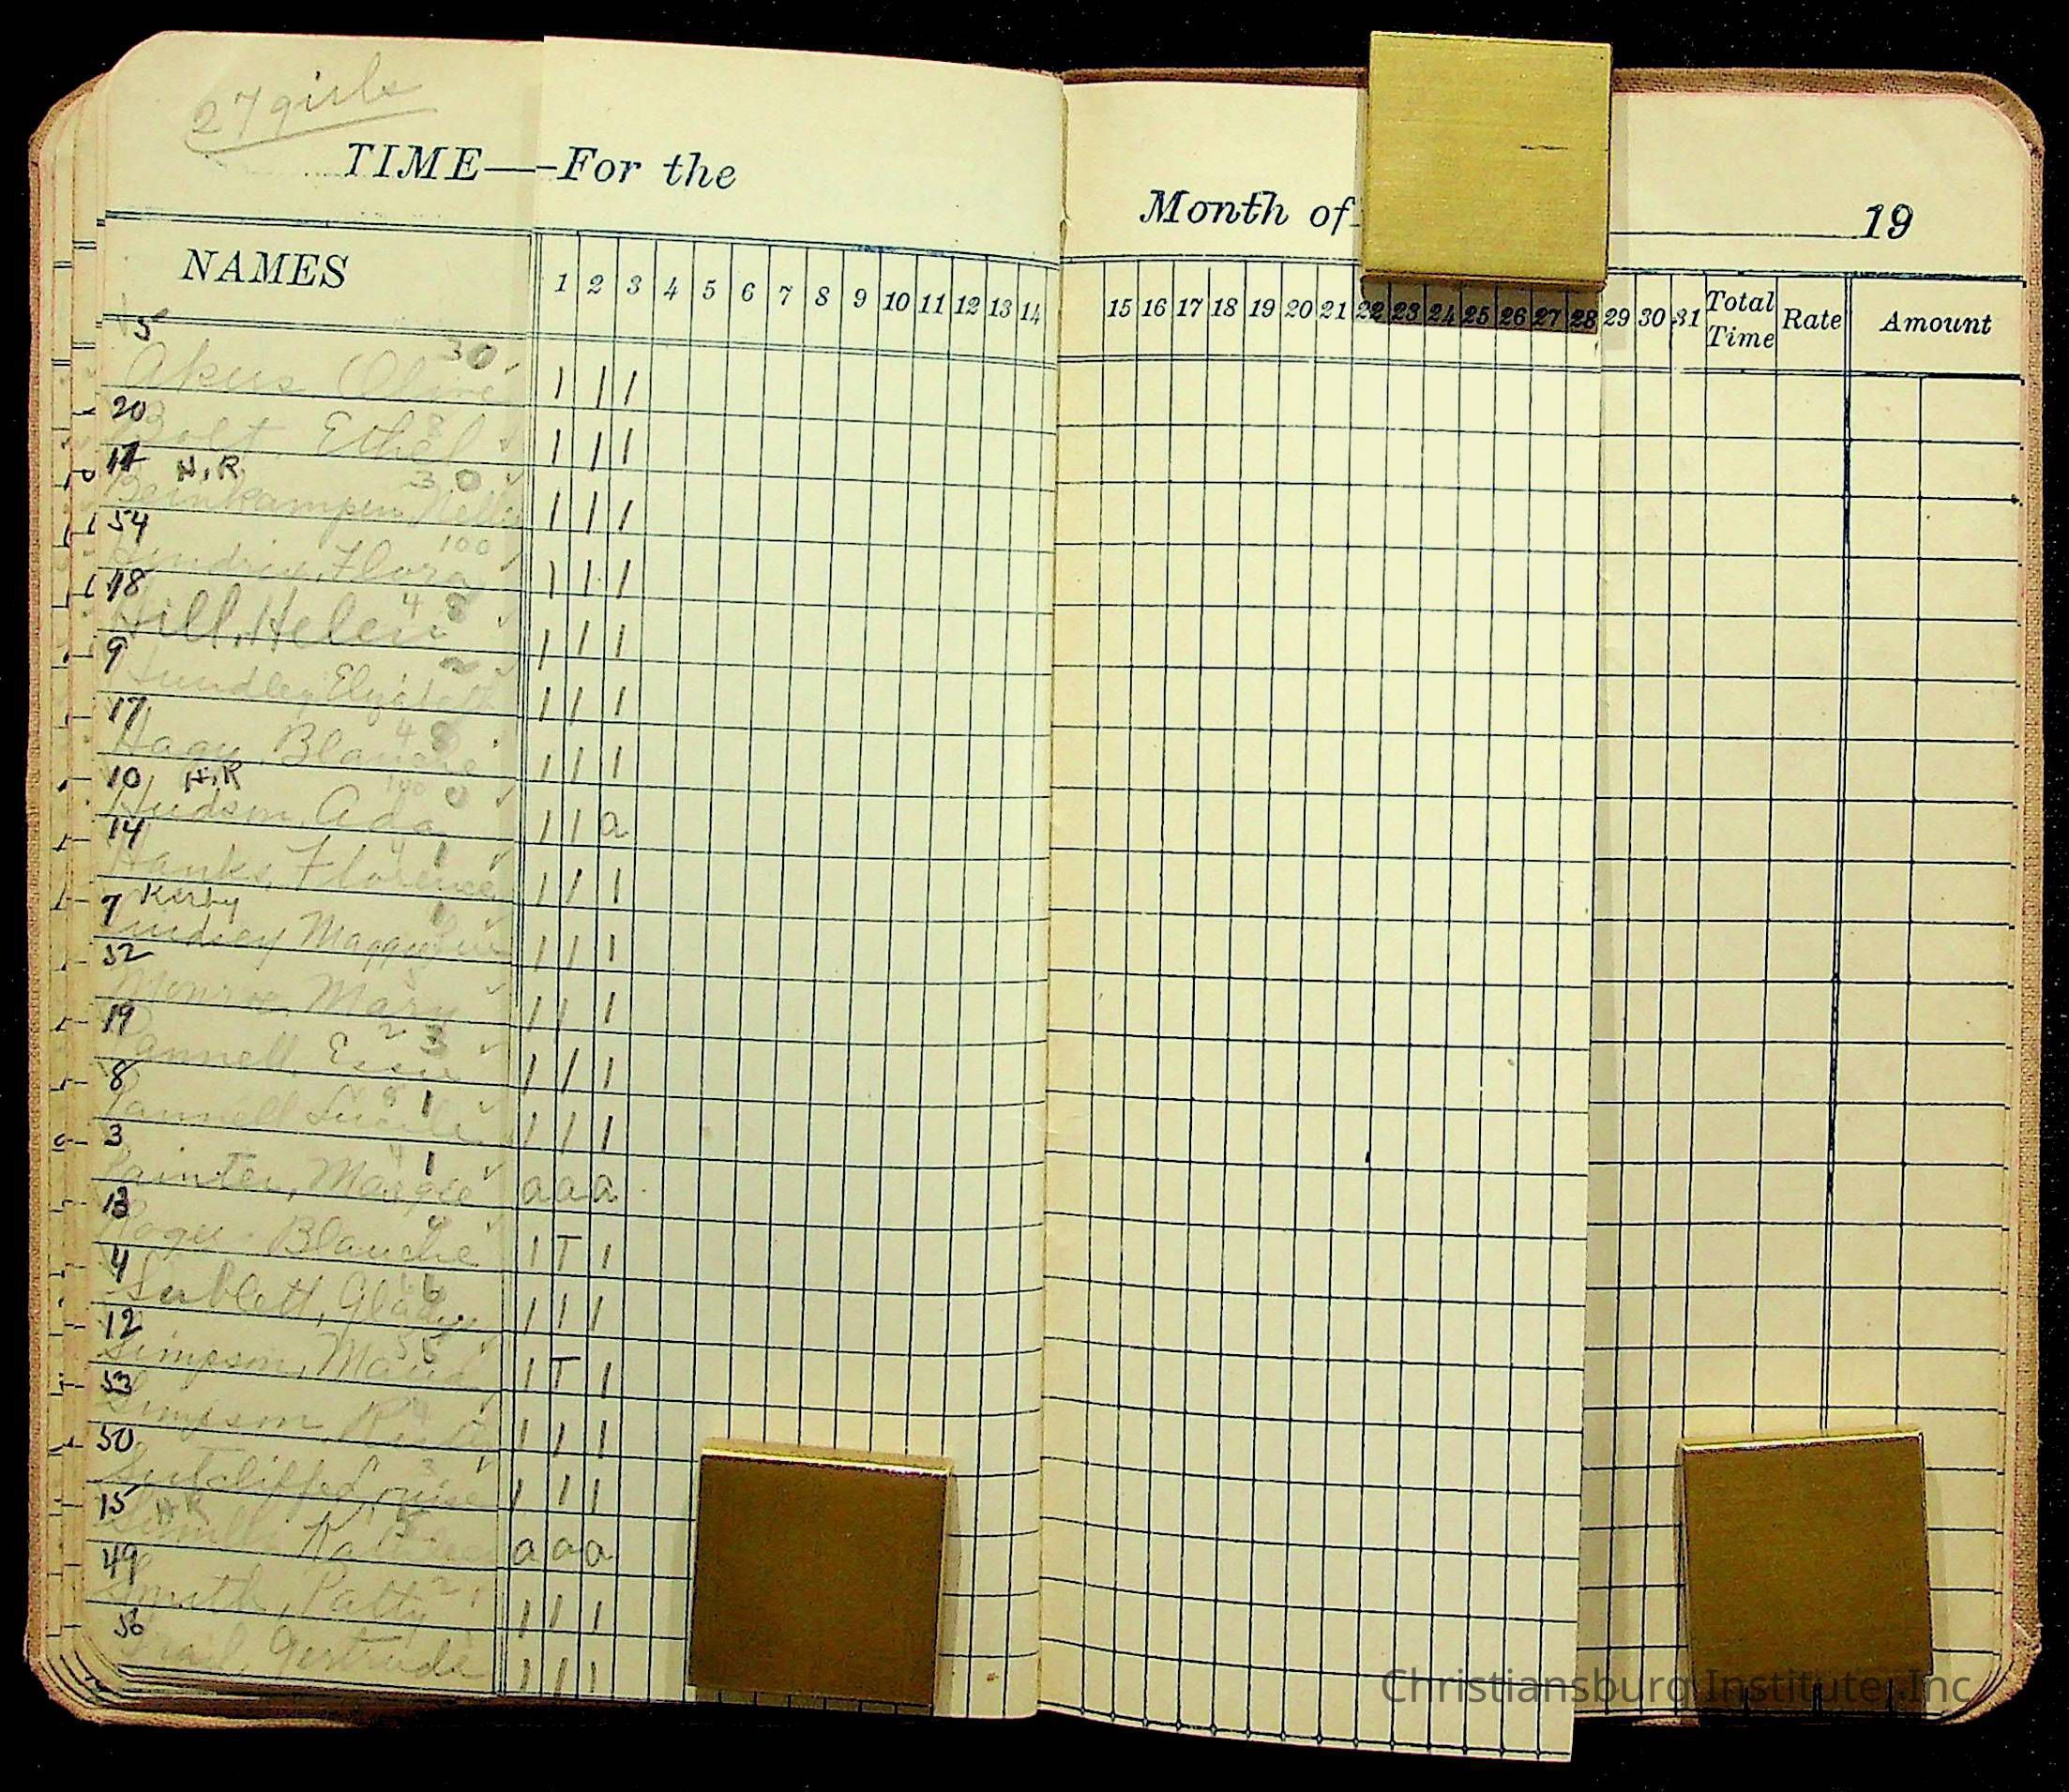 27 girls
TIME—For the
Month of 19
NAMES 1 2 3 4 5 6 7 8 9 10 11 12 13 14 15 16 17 18 19 20 21 22 23 24 25 26 27 28 29 30 31 Total Time Rate Amount
5 30
Akers Olive 1 1 1
20
Bolt Ethel 1 1 1
11 H.R 30
Nelly 1 1 1
54 100
Flora 1 1 1
18 48
Hill, Helen 1 1 1
9
Hundley Elizabeth 1 1 1
17 48
Blanche 1 1 1
10 H.R 100
Hudson, Ada 1 1 a
14 1
Hanks, Florence 1 1 1
7 Kirby 1
Lindsey 1 1 1
52
Monroe, Mary 1 1 1
19 23
Pannell, Essie 1 1 1
8 1
Pannell Lucile 1 1 1
3 1
Painter, Margie a a a
13
Blanche 1 T 1
4
Sublett, Gladys 1 1 1
12
Simpson, Maud 1 T 1
53
Simpson, Ruth 1 1 1
50
Sutcliffe 1 1 1
15 H.R
a a a
49
Smith, Patty 1 1 1
56
Trail, Gertrude 1 1 1
Christiansburg Institute, Inc